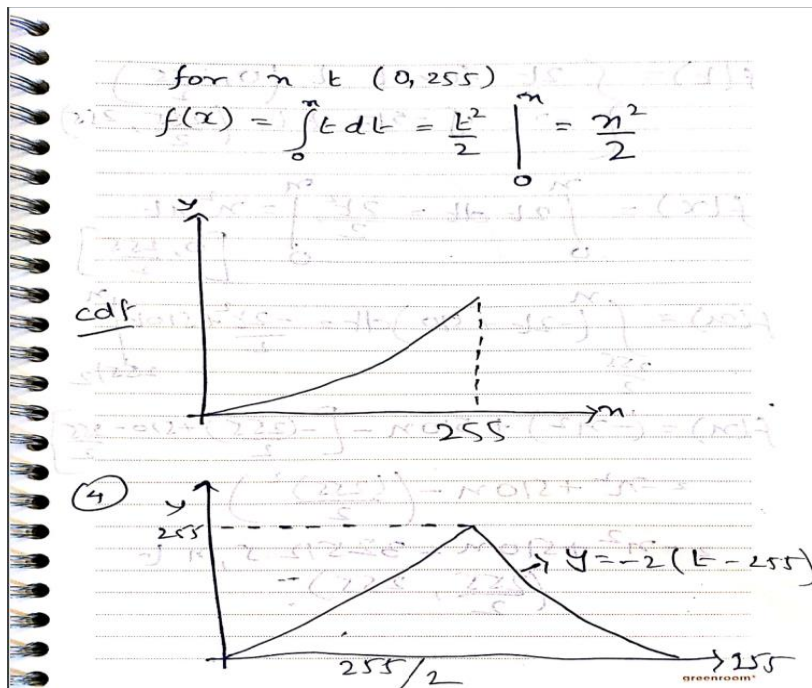 for x t (0, 255)
f(x) = ∫₀ˣ t dt = t²/2 |₀ˣ = x²/2
y
cdf
255
x
4
y
255
y = -2(t - 255)
255/2
255
greenroom